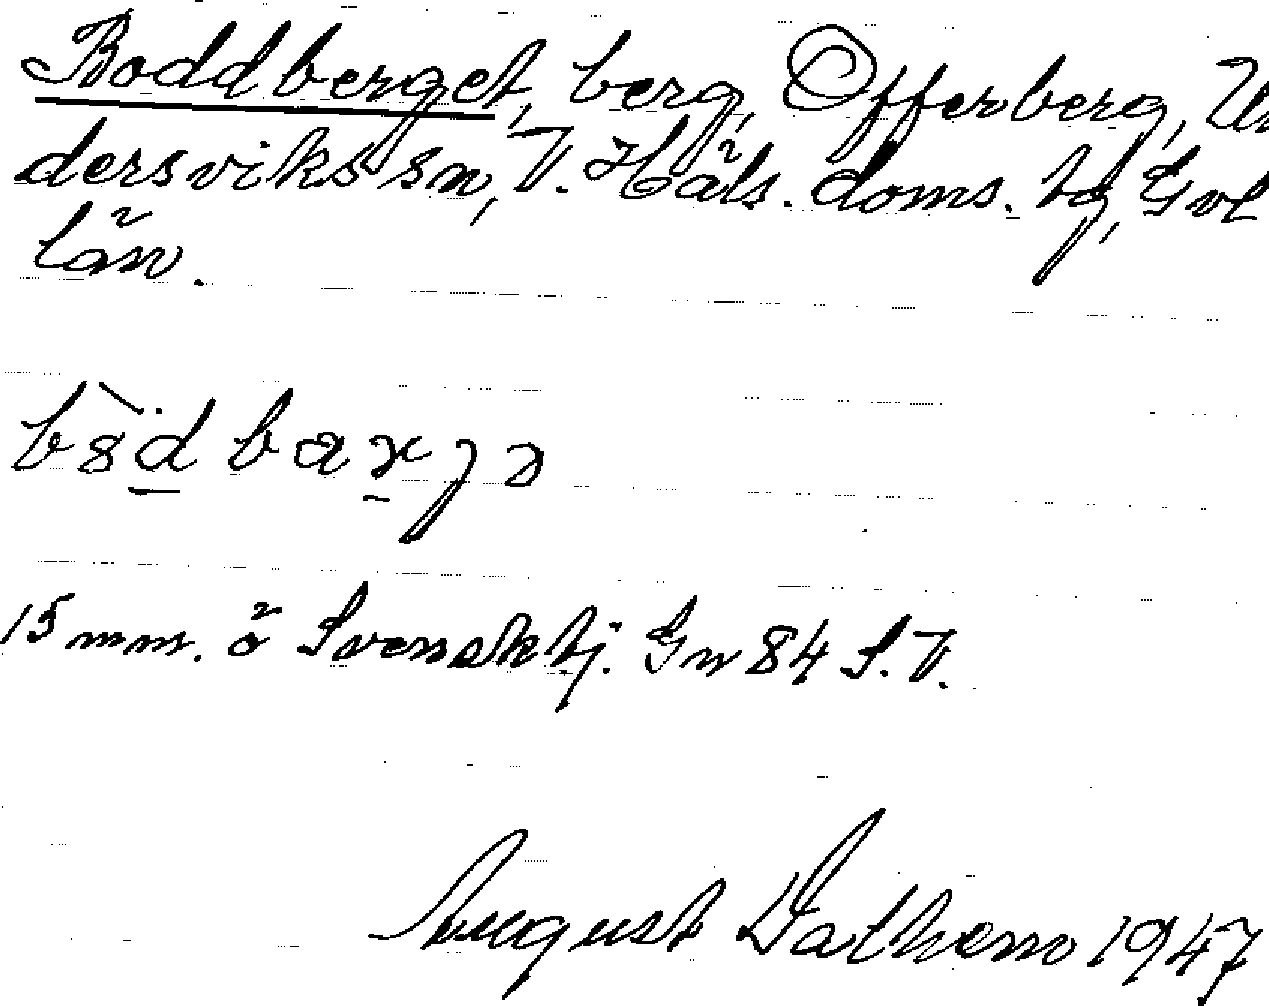 Boddberget, berg, Offerberg, Un
dersviks sn, V. Häls. doms. tg, Gvl
län.
15 mm. ö Svensktj. Gn 84 S.V.
August Dathem 1947